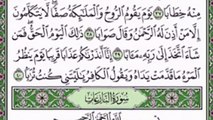 مِنْهُ خِطَابًا ﴿٣٧﴾ يَوْمَ يَقُومُ الرُّوحُ وَالْمَلَائِكَةُ صَفًّا لَا يَتَكَلَّمُونَ
إِلَّا مَنْ أَذِنَ لَهُ الرَّحْمَنُ وَقَالَ صَوَابًا ﴿٣٨﴾ ذَلِكَ الْيَوْمُ الْحَقُّ فَمَنْ
شَاءَ اتَّخَذَ إِلَى رَبِّهِ مَآبًا ﴿٣٩﴾ إِنَّا أَنْذَرْنَاكُمْ عَذَابًا قَرِيبًا يَوْمَ يَنْظُرُ
الْمَرْءُ مَا قَدَّمَتْ يَدَاهُ وَيَقُولُ الْكَافِرُ يَا لَيْتَنِي كُنْتُ تُرَابًا ﴿٤٠﴾
سُورَةُ النَّازِعَاتِ